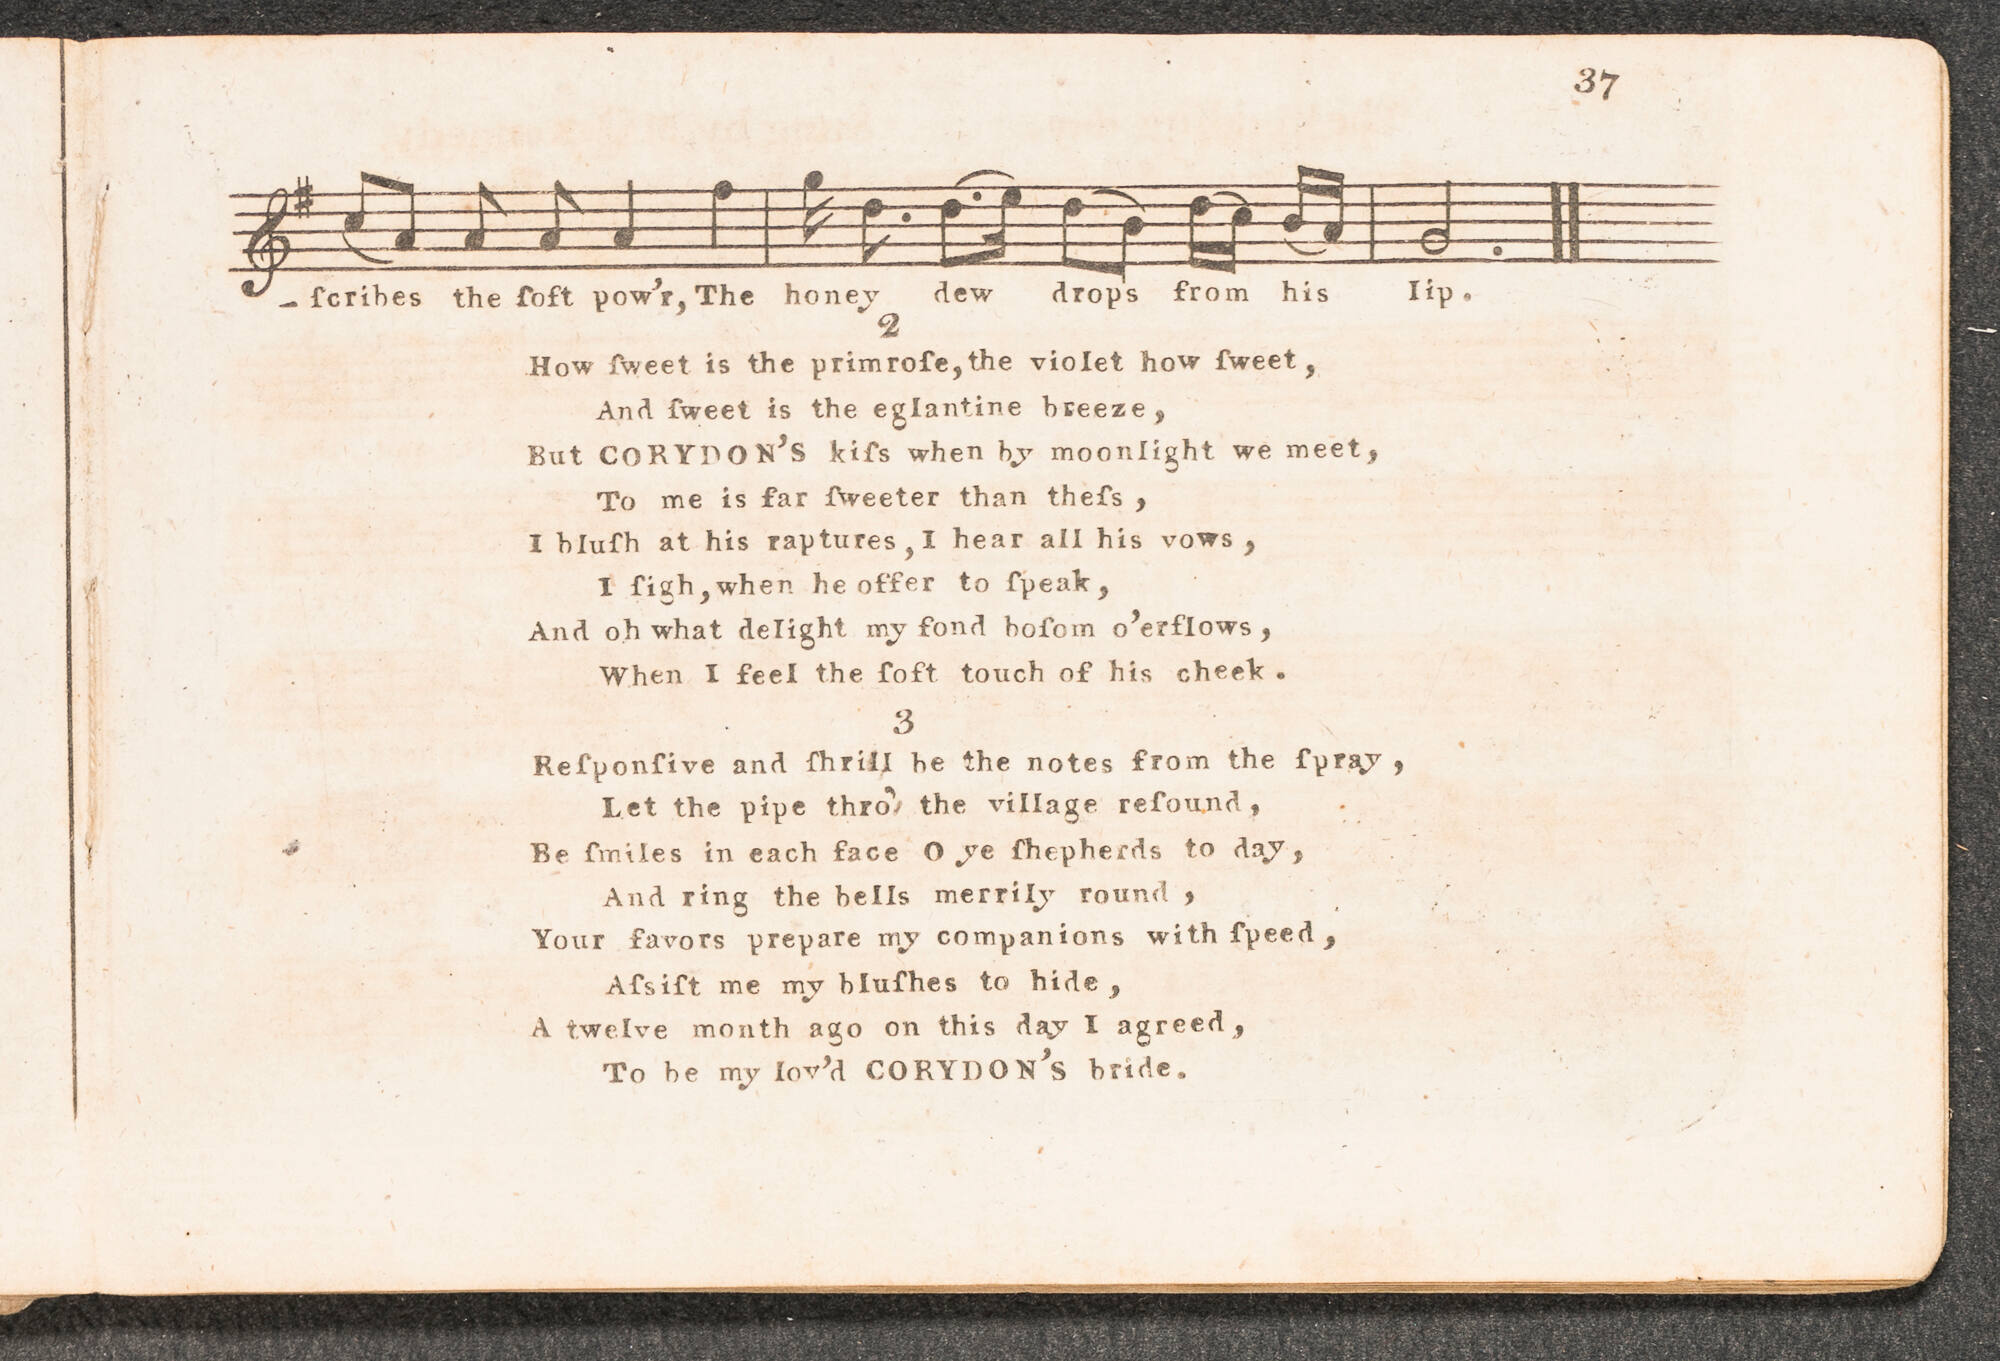 37
-ſcribes the ſoft pow'r, The honey dew drops from his lip.
2
How ſweet is the primroſe, the violet how ſweet,
And ſweet is the eglantine breeze,
But CORYDON'S kiſs when by moonlight we meet,
To me is far ſweeter than theſs,
I bluſh at his raptures, I hear all his vows,
I ſigh, when he offer to ſpeak,
And oh what delight my fond boſom o'erflows,
When I feel the ſoft touch of his cheek.
3
Reſponſive and ſhrill be the notes from the ſpray,
Let the pipe thro' the village reſound,
Be ſmiles in each face O ye ſhepherds to day,
And ring the bells merrily round,
Your favors prepare my companions with ſpeed,
Aſsiſt me my bluſhes to hide,
A twelve month ago on this day I agreed,
To be my lov'd CORYDON'S bride.